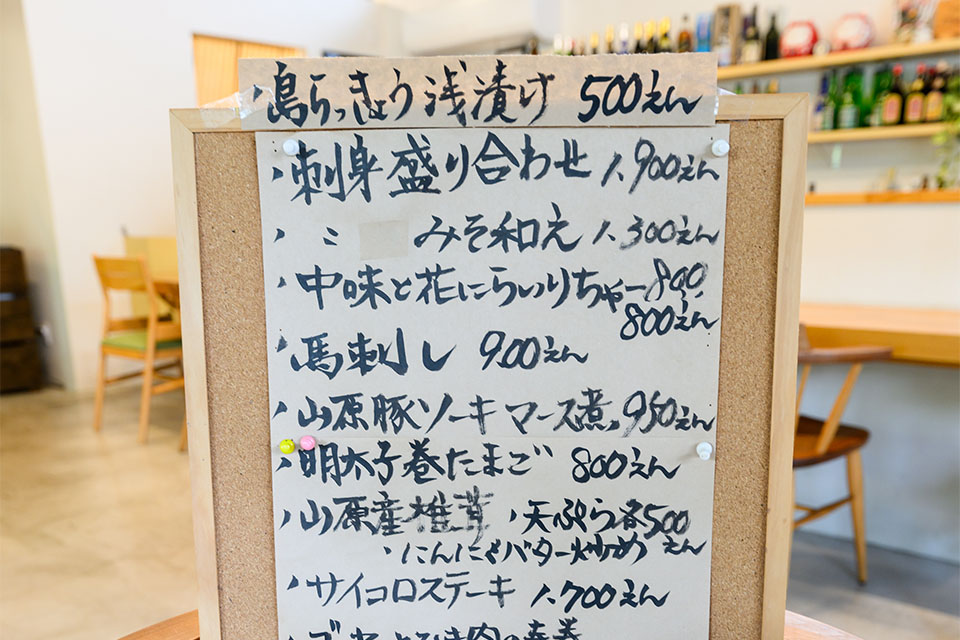 ・島らっきょう浅漬け 500えん
・刺身盛り合わせ 1.900えん
・〃 みそ和え 1.300えん
・中味と花にらいりちゃー 800
800えん
・馬刺し 900えん
・山原豚ソーキマース煮 950えん
・明太子巻たまご 800えん
・山原産椎茸 ・天ぷら各500
・にんにくバター炒め えん
・サイコロステーキ 1.700えん